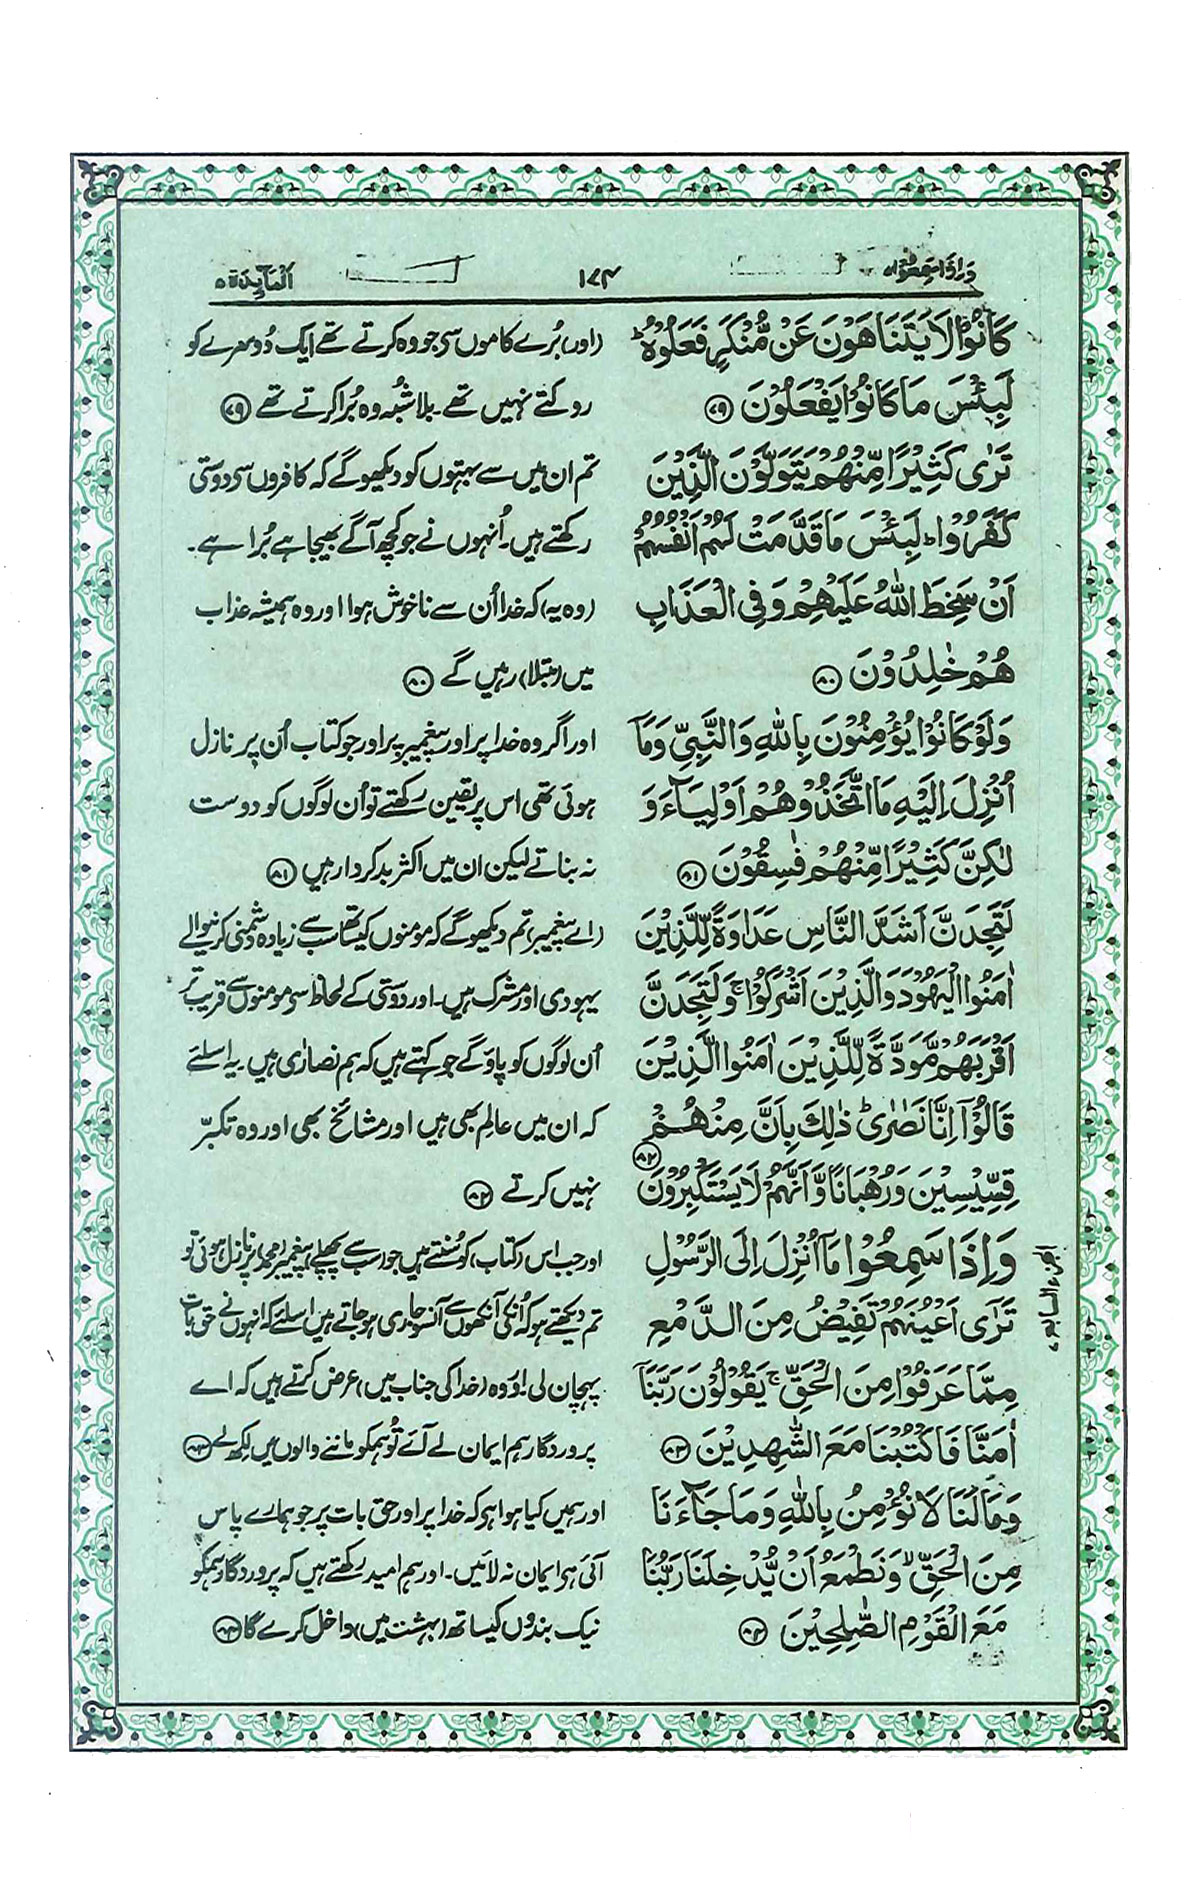 واذا سمعوا ۷
۱۷۴
المآئدة ۵
كَانُوْا لَا يَتَنَاهَوْنَ عَنْ مُّنْكَرٍ فَعَلُوْهُ ؕ
لَبِئْسَ مَا كَانُوْا يَفْعَلُوْنَ ﴿۷۹﴾
تَرٰى كَثِيْرًا مِّنْهُمْ يَتَوَلَّوْنَ الَّذِيْنَ
كَفَرُوْا ؕ لَبِئْسَ مَا قَدَّمَتْ لَهُمْ اَنْفُسُهُمْ
اَنْ سَخِطَ اللّٰهُ عَلَيْهِمْ وَفِى الْعَذَابِ
هُمْ خٰلِدُوْنَ ﴿۸۰﴾
وَلَوْ كَانُوْا يُؤْمِنُوْنَ بِاللّٰهِ وَالنَّبِىِّ وَمَاۤ
اُنْزِلَ اِلَيْهِ مَا اتَّخَذُوْهُمْ اَوْلِيَآءَ وَ
لٰكِنَّ كَثِيْرًا مِّنْهُمْ فٰسِقُوْنَ ﴿۸۱﴾
لَتَجِدَنَّ اَشَدَّ النَّاسِ عَدَاوَةً لِّلَّذِيْنَ
اٰمَنُوا الْيَهُوْدَ وَالَّذِيْنَ اَشْرَكُوْا ۚ وَلَتَجِدَنَّ
اَقْرَبَهُمْ مَّوَدَّةً لِّلَّذِيْنَ اٰمَنُوا الَّذِيْنَ
قَالُوْۤا اِنَّا نَصٰرٰى ؕ ذٰلِكَ بِاَنَّ مِنْهُمْ
قِسِّيْسِيْنَ وَرُهْبَانًا وَّاَنَّهُمْ لَا يَسْتَكْبِرُوْنَ ﴿۸۲﴾
وَاِذَا سَمِعُوْا مَاۤ اُنْزِلَ اِلَى الرَّسُوْلِ
تَرٰۤى اَعْيُنَهُمْ تَفِيْضُ مِنَ الدَّمْعِ
مِمَّا عَرَفُوْا مِنَ الْحَقِّ ۚ يَقُوْلُوْنَ رَبَّنَاۤ
اٰمَنَّا فَاكْتُبْنَا مَعَ الشّٰهِدِيْنَ ﴿۸۳﴾
وَمَا لَنَا لَا نُؤْمِنُ بِاللّٰهِ وَمَا جَآءَنَا
مِنَ الْحَقِّ ۙ وَنَطْمَعُ اَنْ يُّدْخِلَنَا رَبُّنَا
مَعَ الْقَوْمِ الصّٰلِحِيْنَ ﴿۸۴﴾
(اور) بُرے کاموں سے جو وہ کرتے تھے ایک دوسرے کو
روکتے نہیں تھے۔ بلا شبہ وہ بُرا کرتے تھے ﴿۷۹﴾
تم ان میں سے بہتوں کو دیکھو گے کہ کافروں سے دوستی
رکھتے ہیں۔ اُنہوں نے جو کچھ آگے بھیجا ہے بُرا ہے۔
(وہ یہ) کہ خدا اُن سے ناخوش ہوا اور وہ ہمیشہ عذاب
میں (مبتلا) رہیں گے ﴿۸۰﴾
اور اگر وہ خدا پر اور پیغمبر پر اور جو کتاب اُن پر نازل
ہوئی تھی اس پر یقین رکھتے تو اُن لوگوں کو دوست
نہ بناتے لیکن ان میں اکثر بدکردار ہیں ﴿۸۱﴾
(اے پیغمبر) تم دیکھو گے کہ مومنوں کیساتھ سب سے زیادہ دشمنی کرنیوالے
یہودی اور مشرک ہیں۔ اور دوستی کے لحاظ سے مومنوں سے قریب تر
اُن لوگوں کو پاؤ گے جو کہتے ہیں کہ ہم نصارٰی ہیں۔ یہ اسلئے
کہ ان میں عالم بھی ہیں اور مشائخ بھی اور وہ تکبّر
نہیں کرتے ﴿۸۲﴾
اور جب اس (کتاب) کو سُنتے ہیں جو سب سے پچھلے پیغمبر (محمدؐ) پر نازل ہوئی تو
تم دیکھتے ہو کہ اُنکی آنکھوں سے آنسو جاری ہو جاتے ہیں اسلئے کہ انہوں نے حق بات
پہچان لی۔ اور وہ (خدا کی جناب میں) عرض کرتے ہیں کہ اے
پروردگار ہم ایمان لے آئے تُو ہمکو ماننے والوں میں لکھ لے ﴿۸۳﴾
اور ہمیں کیا ہوا ہے کہ خدا پر اور حق بات پر جو ہمارے پاس
آئی ہے ایمان نہ لائیں۔ اور ہم امید رکھتے ہیں کہ پروردگار ہمکو
نیک بندوں کیساتھ (بہشت میں) داخل کرے گا ﴿۸۴﴾
الجزء السابع ۷